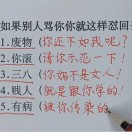 如果别人骂你你就这样怼回去
1.废物(你还不如我呢?)
2.你滚(请你示范一下!)
3.三八(你妈才是女人)
4.贱人(就是跟你学的!)
5.有病(被你传染的)